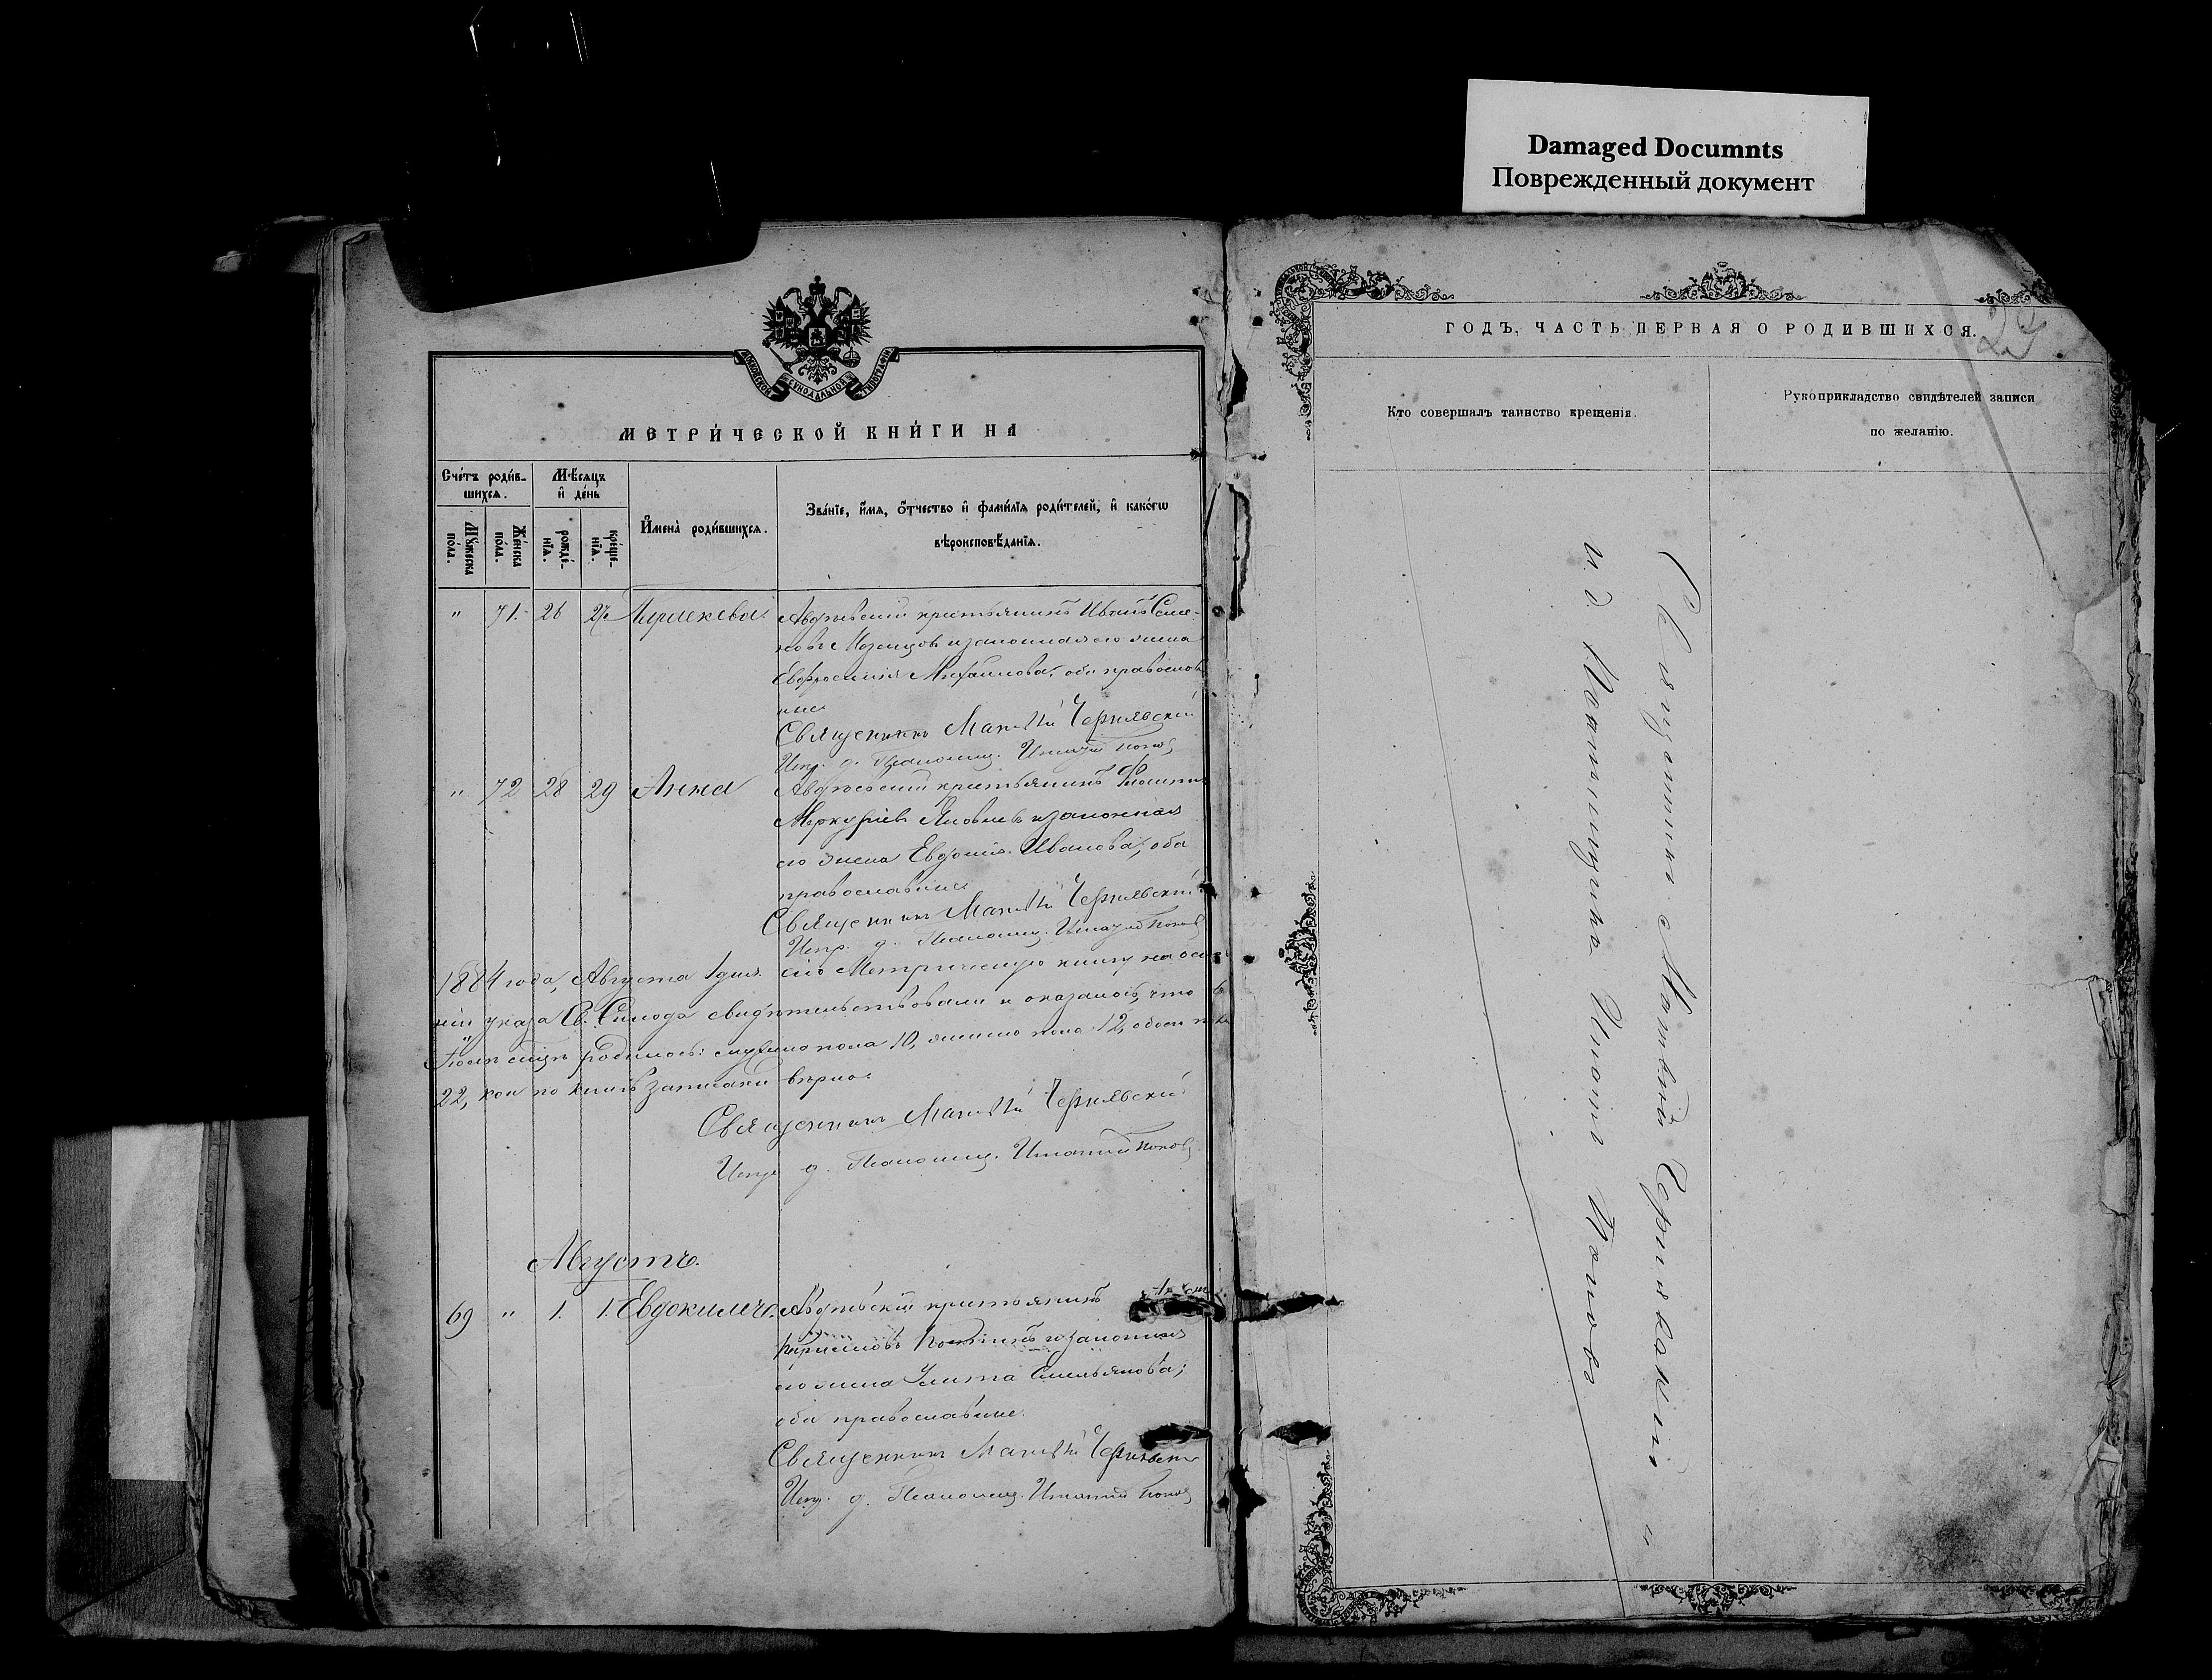 Damaged Documnts
Поврежденный документ
МОСКОВСКОЙ СѴНОДАЛЬНОЙ ТИПОГРАФІИ
МЕТРИ́ЧЕСКОЙ КНИ́ГИ НА
Сче́тъ роди́в-
шихся.
Мѣ́сяцъ
и҆ де́нь
Мꙋ́жеска
по́ла.
Же́нска
по́ла.
рожде́-
нїѧ.
креще-
нїѧ.
И҆мена̀ роди́вшихся.
Зва́нїе, и҆́мѧ, ѻ҆́тчество и҆ фами́лїѧ роди́телей, и҆ како́гѡ
вѣроисповѣ́данїѧ.
" 71. 26 27 Параскева. крестьянинъ Иванъ Семе-
новъ и законная его жена
Евфросинія Михаилова, оба православ
ные
Священникъ Матѳій Чернявскій
Испр. д. Псаломщ. Попов
" 72 28 29 Анна крестьянинъ
Меркуріевъ Яковлевъ и законная
его жена Евдокія Иванова; оба
православные
Священникъ Матѳій Чернявскій
Испр. д. Псаломщ. Попов
1884 года, Августа 1 дня. сію Метрическую книгу на осно
ніи указа Св. Синода свидѣтельствовали и оказалось, что въ
Іюлѣ мцѣ родилось: мужеска пола 10, женска пола 12, обоего пола
22, кои по книгѣ записаны вѣрно.
Священникъ Матѳій Чернявскій
Испр. д. Псаломщ. Попов
Августъ.
69 " 1. 1. Евдокимъ. крестьянинъ
Кирилловъ и законная
его жена Улита Емельянова;
оба православные.
Священникъ Матѳій Чернявскій
Испр. д. Псаломщ. Попов
ГОДЪ, ЧАСТЬ ПЕРВАЯ О РОДИВШИХСЯ.
29
Кто совершалъ таинство крещенія.
Рукоприкладство свидѣтелей записи
по желанію.
Священникъ Матѳій Чернявскій и
и. д. Псаломщика Поповъ